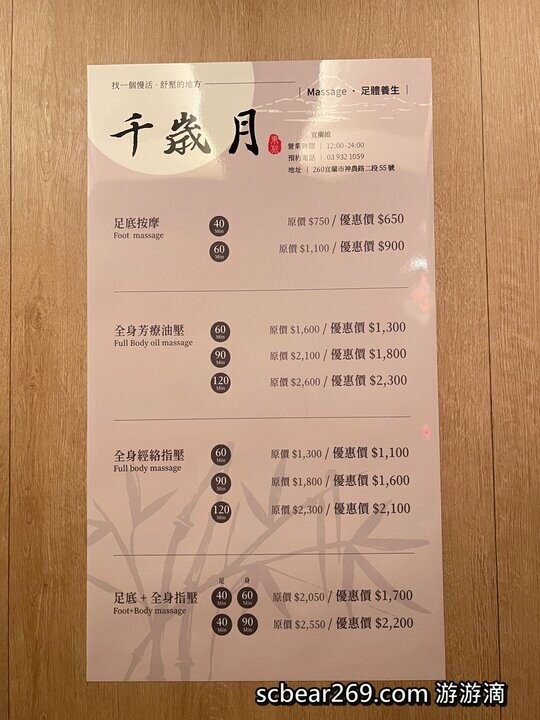 找一個慢活．舒壓的地方
｜ Massage · 足體養生 ｜
千歲月
宜蘭館
營業時間 ｜ 12:00-24:00
預約電話 ｜ 03 932 1059
地址 ｜ 260宜蘭市神農路二段 55 號
足底按摩
Foot massage
40 Min 原價 $750 / 優惠價 $650
60 Min 原價 $1,100 / 優惠價 $900
全身芳療油壓
Full Body oil massage
60 Min 原價 $1,600 / 優惠價 $1,300
90 Min 原價 $2,100 / 優惠價 $1,800
120 Min 原價 $2,600 / 優惠價 $2,300
全身經絡指壓
Full body massage
60 Min 原價 $1,300 / 優惠價 $1,100
90 Min 原價 $1,800 / 優惠價 $1,600
120 Min 原價 $2,300 / 優惠價 $2,100
足底 + 全身指壓
Foot+Body massage
足 身
40 Min 60 Min 原價 $2,050 / 優惠價 $1,700
40 Min 90 Min 原價 $2,550 / 優惠價 $2,200
scbear269.com 游游滴